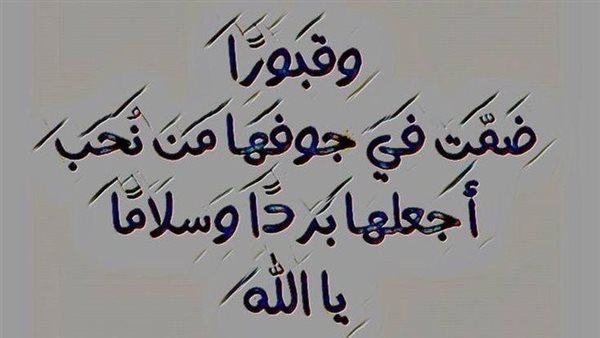 وقبورًا
ضَمَّت في جوفهَا مَن نُحَب
أجعلها بَردًا وَسلامًا
يا الله